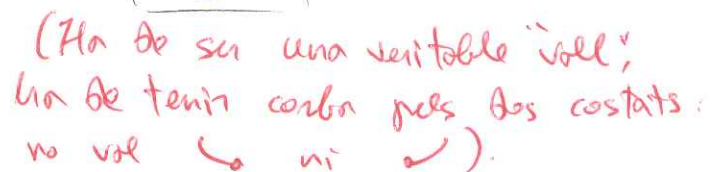 (Ha de ser una veritable "vall",
ha de tenir corba pels dos costats:
no val ni ).